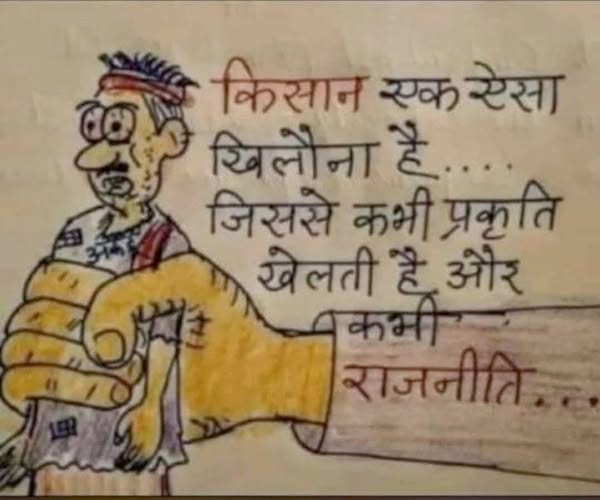 किसान एक ऐसा
खिलौना है....
जिससे कभी प्रकृति
खेलती है और
कभी
राजनीति...